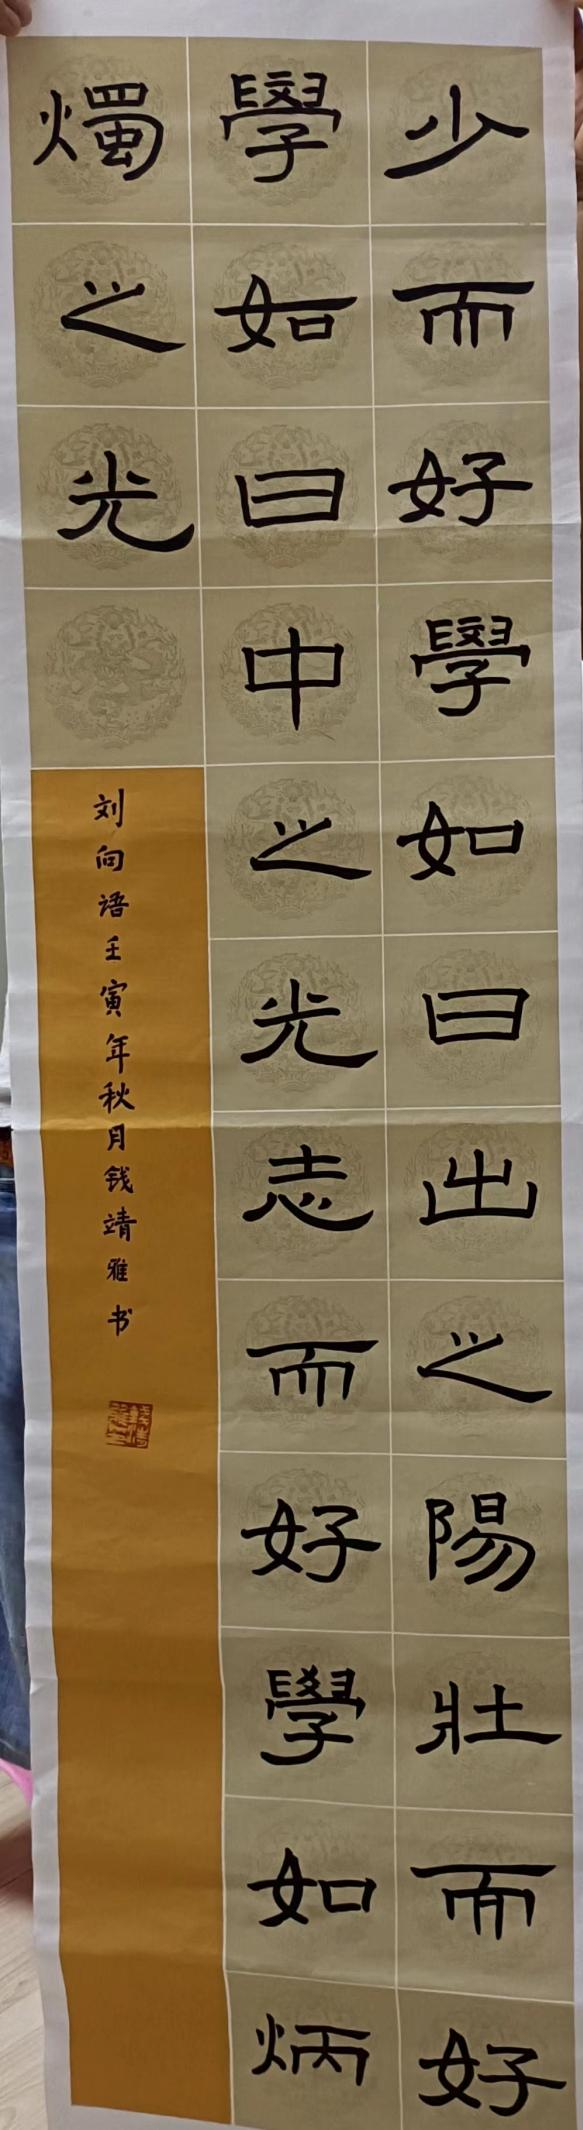 少而好學如日出之陽壯而好
學如日中之光志而好學如炳
燭之光
刘向语壬寅年秋月钱靖雅书